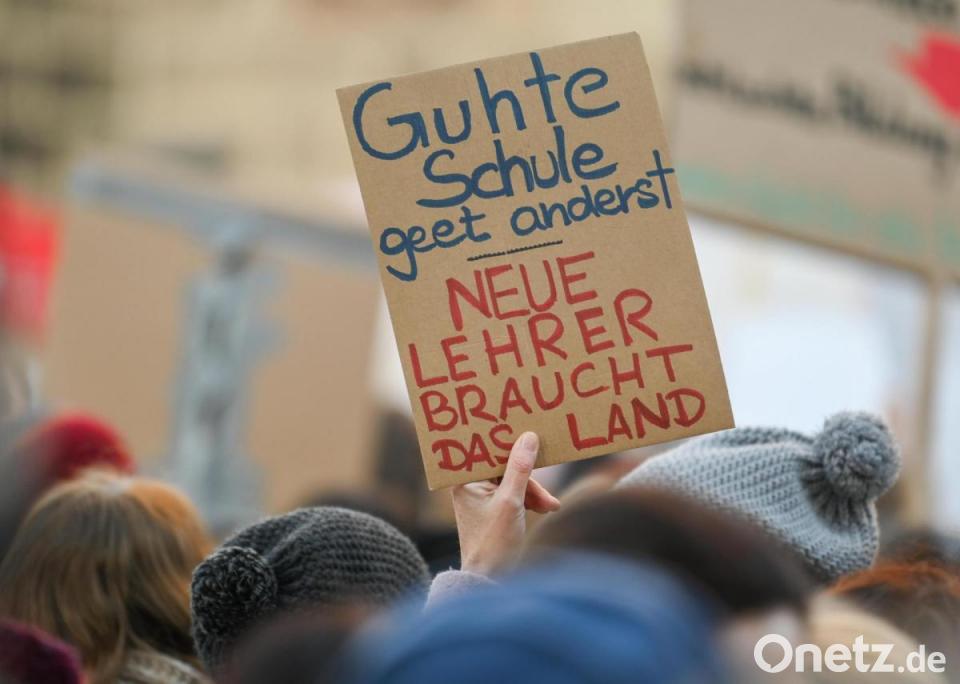 Guhte
Schule
geet anderst
NEUE
LEHRER
BRAUCHT
DAS LAND
Onetz.de